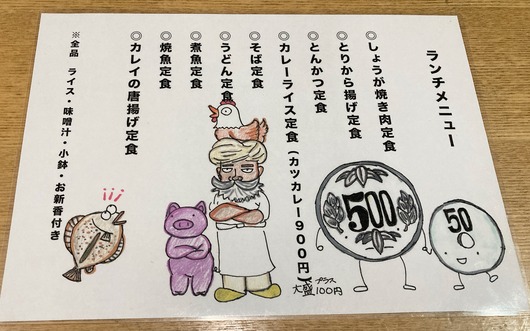 ランチメニュー
◎しょうが焼き肉定食
◎とりから揚げ定食
◎とんかつ定食
◎カレーライス定食（カツカレー900円）
大盛プラス100円
◎そば定食
◎うどん定食
◎煮魚定食
◎焼魚定食
◎カレイの唐揚げ定食
※全品 ライス・味噌汁・小鉢・お新香付き
500
50